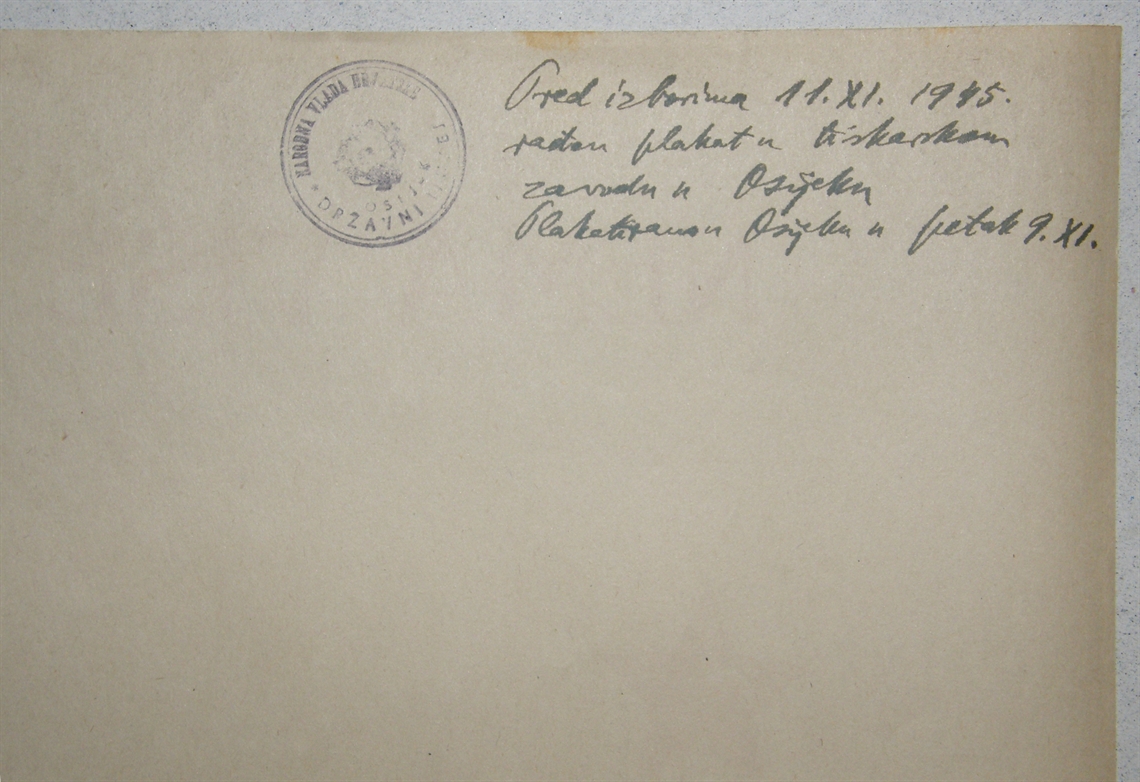 NARODNA VLADA HRVATSKE
DRŽAVNI
Pred izborima 11. XI. 1945.
rađen plakat u tiskarskom
zavodu u Osijeku
Plakatirano u Osijeku u petak 9. XI.